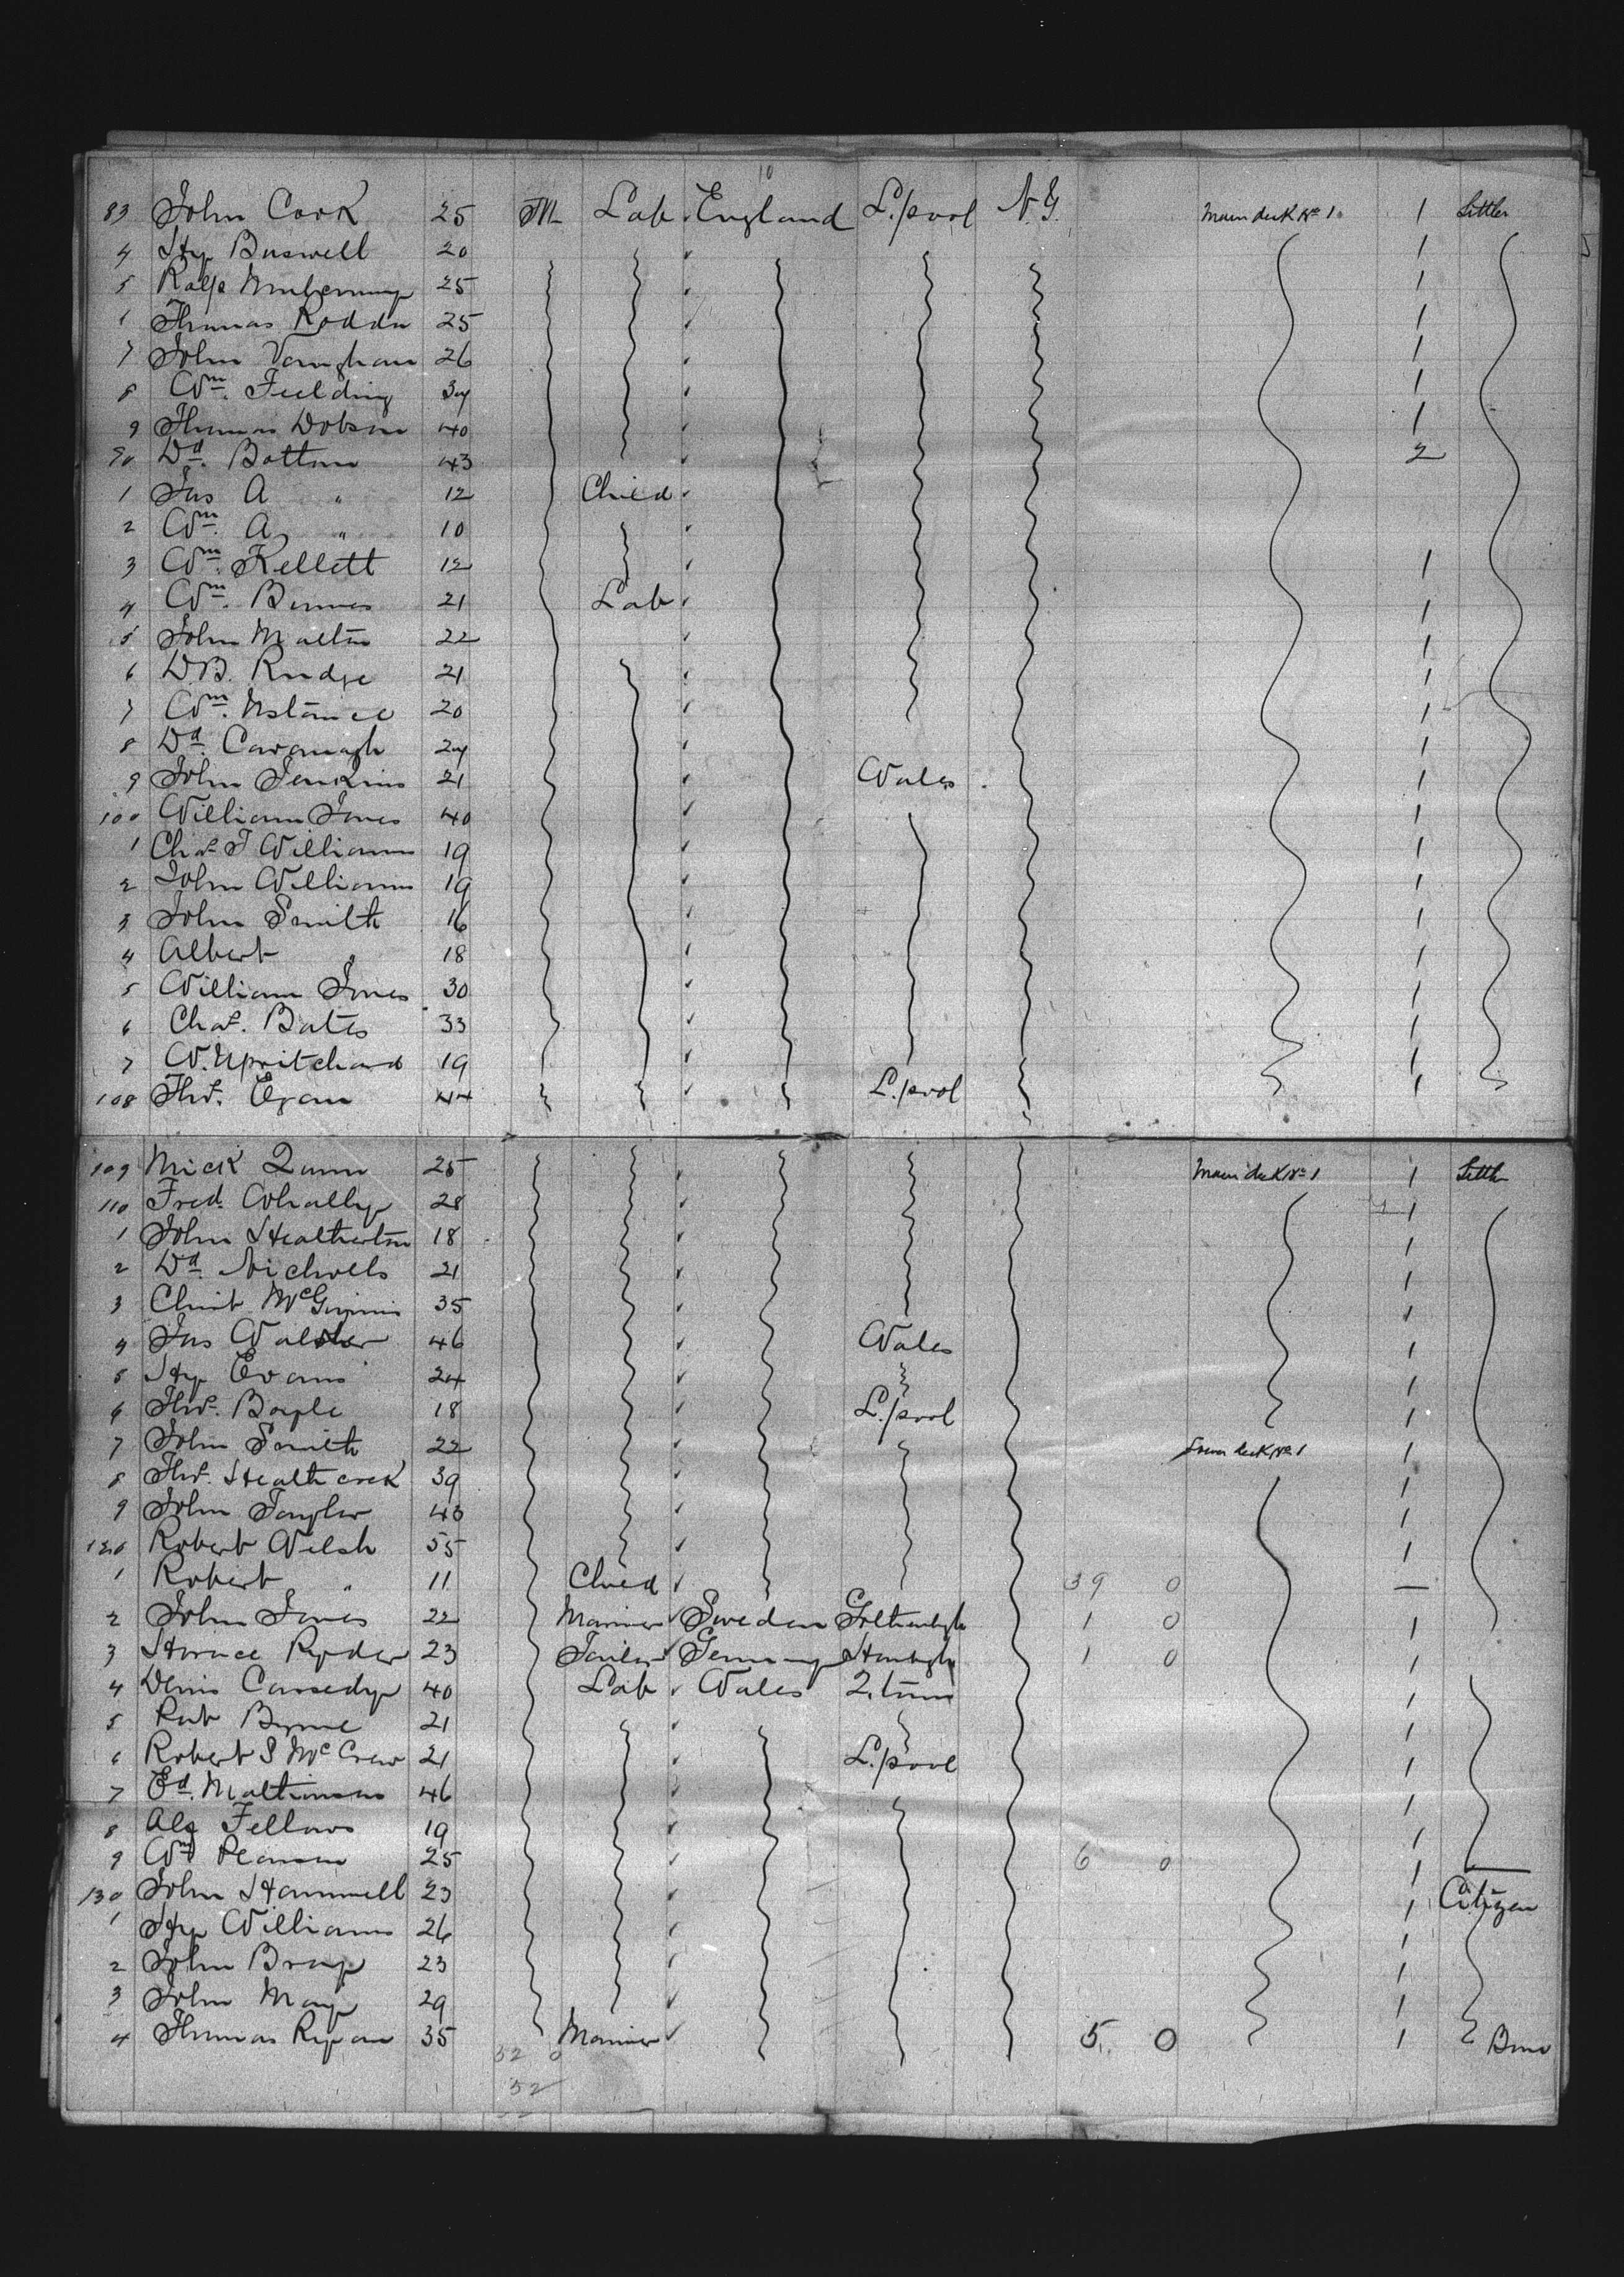 10
83 John Cook 25 M Lab England L.pool N.Y. Main deck No 1 1 Settler
4 Hy Buswell 20 1
5 Ralp 25 1
Thomas Roddn 25 1
7 John Vaughan 26 1
8 Wm. Fielding 34 1
9 Thomas Dobson 40 1
90 Dd. Bottom 43 2
1 Jas A " 12 Child
2 Wm. A " 10
3 Wm. Kellett 12 1
4 Wm. Binnes 21 Lab 1
5 John Malton 22 1
6 D.B. Rudge 21 1
7 Wm. Ustance 20 1
8 Dd. Cavanagh 24 1
9 John Jenkins 21 Wales 1
100 William Jones 40 1
1 Chas J Williams 19 1
2 John Williams 19 1
3 John Smith 16 1
4 Albert " 18 1
5 William Jones 30 1
6 Chas. Bates 33 1
7 W. Upritchard 19 1
108 Thos. Egan 44 L.pool 1
109 Mick Quinn 25 Main deck No 1 1 Settler
110 Fred. Whally 28 1
1 John Heatherton 18 1
2 Dd. Nicholls 21 1
3 McGinnis 35 1
4 Jas Walsher 46 Wales 1
5 Hy Evans 24 1
6 Thos. Boyle 18 L.pool 1
7 John Smith 22 Lower deck No 1 1
8 Thos. Heathcock 39 1
9 John Taylor 43 1
120 Robert Welsh 55 1
1 Robert " 11 Child 39 0 —
2 John Jones 22 Mariner Sweden Gothenbgh 1 0 1
3 Horace Ryder 23 Tailor Germany Hambgh 1 0 1
4 Denis Cassedy 40 Lab Wales 1
5 Byrne 21 1
6 Robert S McCraw 21 L.pool 1
7 Ed. Maltimson 46 1
8 Alf Fellows 19 1
9 Wm Pearson 25 6 0 1
130 John Hammell 23 1 Citizen
1 Hy Williams 26 1
2 John Bray 23 1
3 John May 29 1
4 Thomas Ryan 35 Mariner 5 0 1
52 0
52